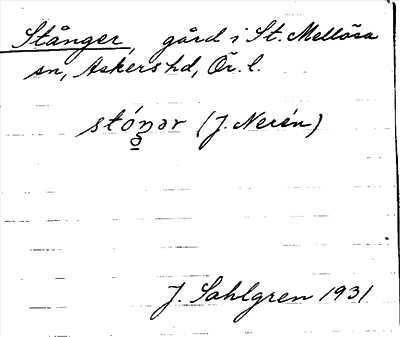 Stånger, gård i St. Mellösa
sn, Askers hd, Ör. l.
stóŋ̠ər (J. Nerén)
J. Sahlgren 1931